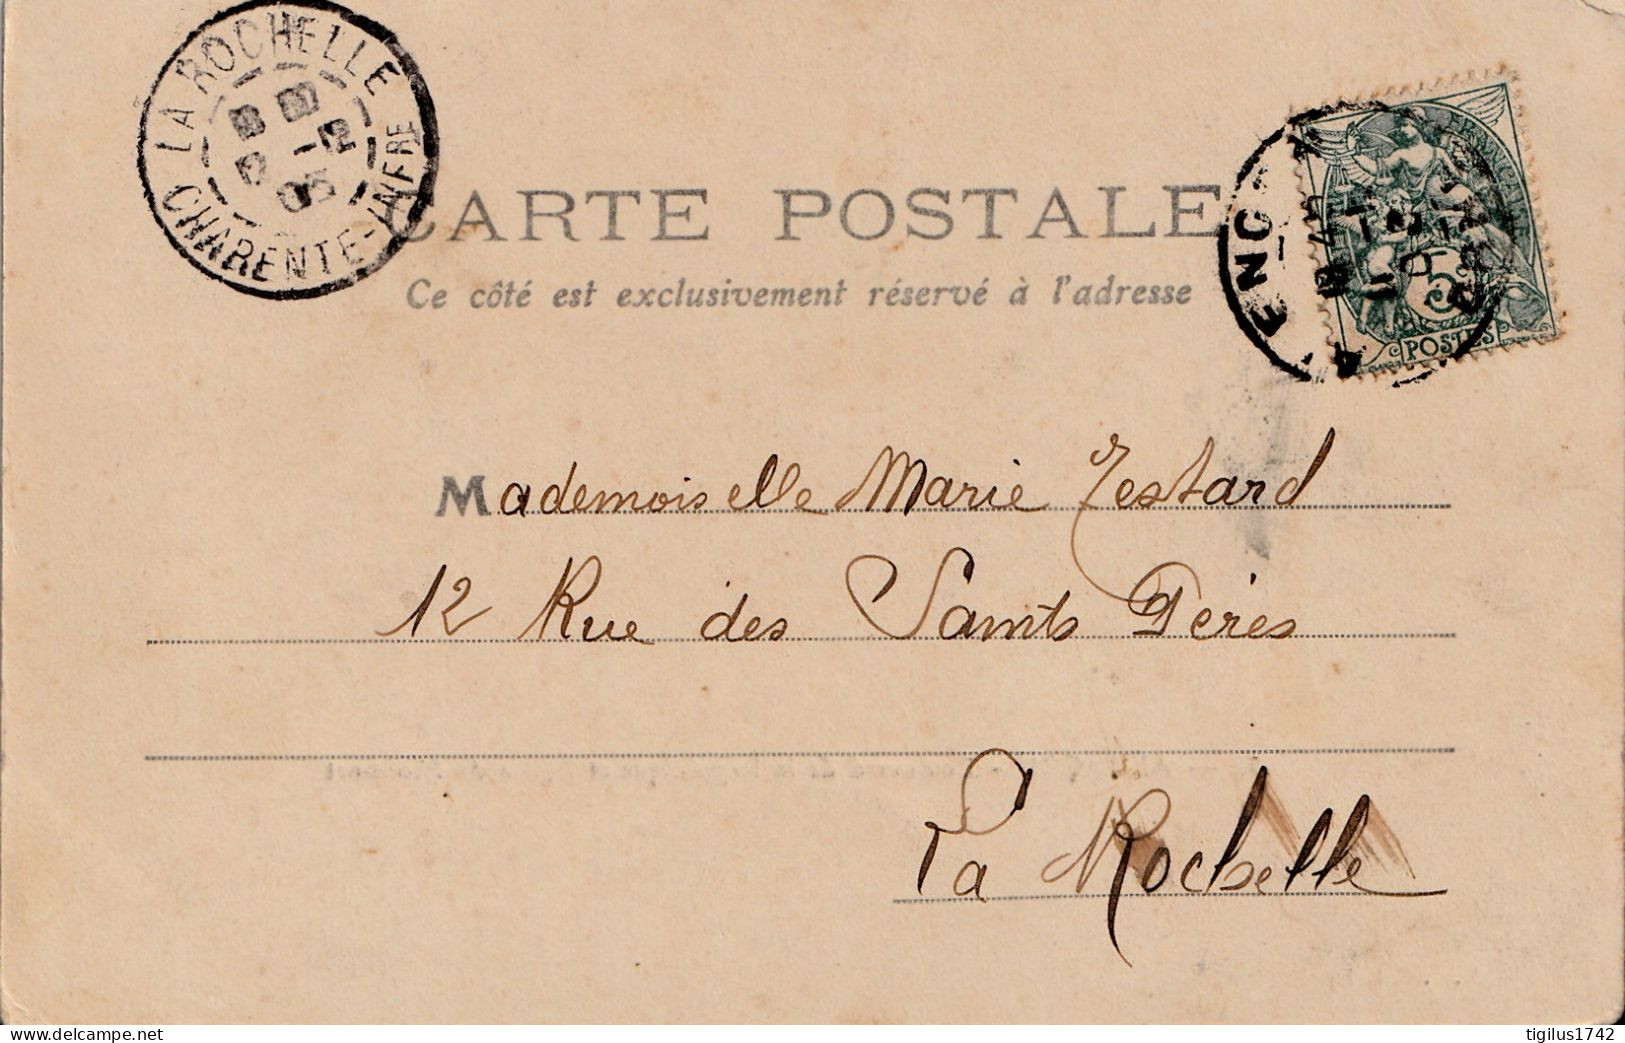 LA ROCHELLE
CHARENTE-INFRE
CARTE POSTALE
Ce côté est exclusivement réservé à l'adresse
POSTES
5
Mademoiselle Marie Testard
12 Rue des Saints Pères
La Rochelle
tigilus1742